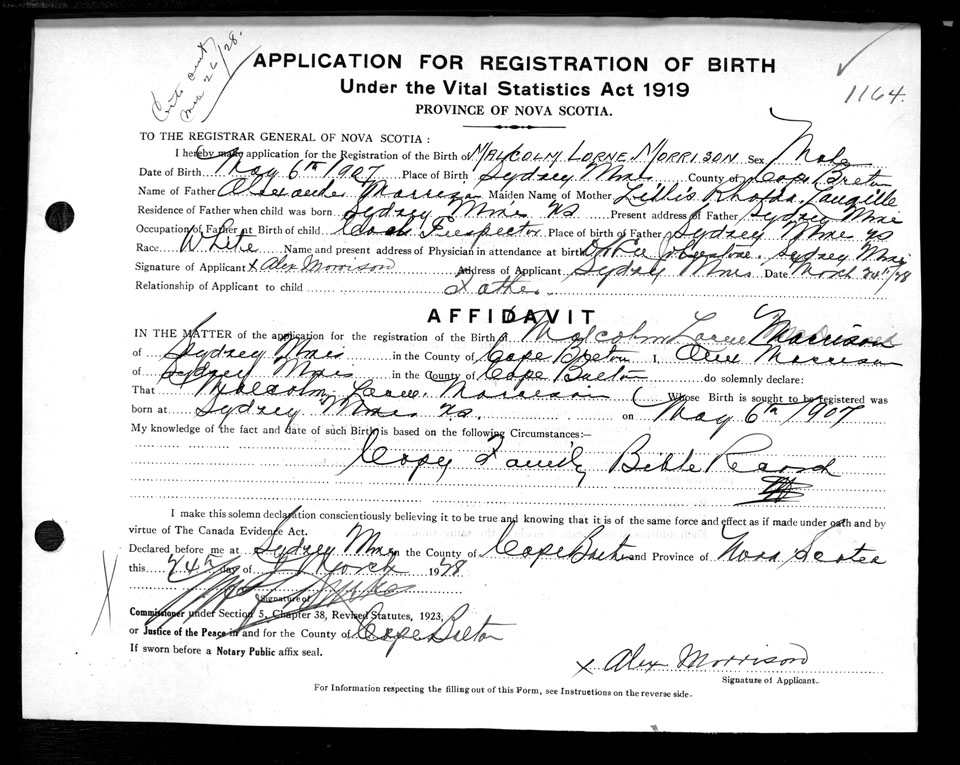 APPLICATION FOR REGISTRATION OF BIRTH
Under the Vital Statistics Act 1919
PROVINCE OF NOVA SCOTIA.
1164.
TO THE REGISTRAR GENERAL OF NOVA SCOTIA :
I hereby make application for the Registration of the Birth of MALCOLM LORNE MORRISON Sex Male
Date of Birth May 6th 1907 Place of Birth Sydney Mines County of Cape Breton
Name of Father Alexander Morrison Maiden Name of Mother Lillis Rhoda
Residence of Father when child was born Sydney Mines NS Present address of Father Sydney Mines
Occupation of Father at Birth of child Coal Inspector Place of birth of Father Sydney Mines NS
Race White Name and present address of Physician in attendance at birth Sydney Mines
Signature of Applicant x Alex Morrison Address of Applicant Sydney Mines Date March 24th/28
Relationship of Applicant to child Father
AFFIDAVIT
IN THE MATTER of the application for the registration of the Birth of Malcolm Lorne Morrison
of Sydney Mines in the County of Cape Breton I, Alex Morrison
of Sydney Mines in the County of Cape Breton do solemnly declare:
That Malcolm Lorne Morrison (Whose Birth is sought to be registered was
born at Sydney Mines NS. on May 6th 1907
My knowledge of the fact and date of such Birth is based on the following Circumstances:—
Copy Family Bible Record
I make this solemn declaration conscientiously believing it to be true and knowing that it is of the same force and effect as if made under oath and by
virtue of The Canada Evidence Act.
Declared before me at Sydney Mines in the County of Cape Breton and Province of Nova Scotia
this 24th day of March 1928
Signature of
Commissioner under Section 5, Chapter 38, Revised Statutes, 1923,
or Justice of the Peace in and for the County of Cape Breton
If sworn before a Notary Public affix seal.
x Alex Morrison
Signature of Applicant.
For Information respecting the filling out of this Form, see Instructions on the reverse side.